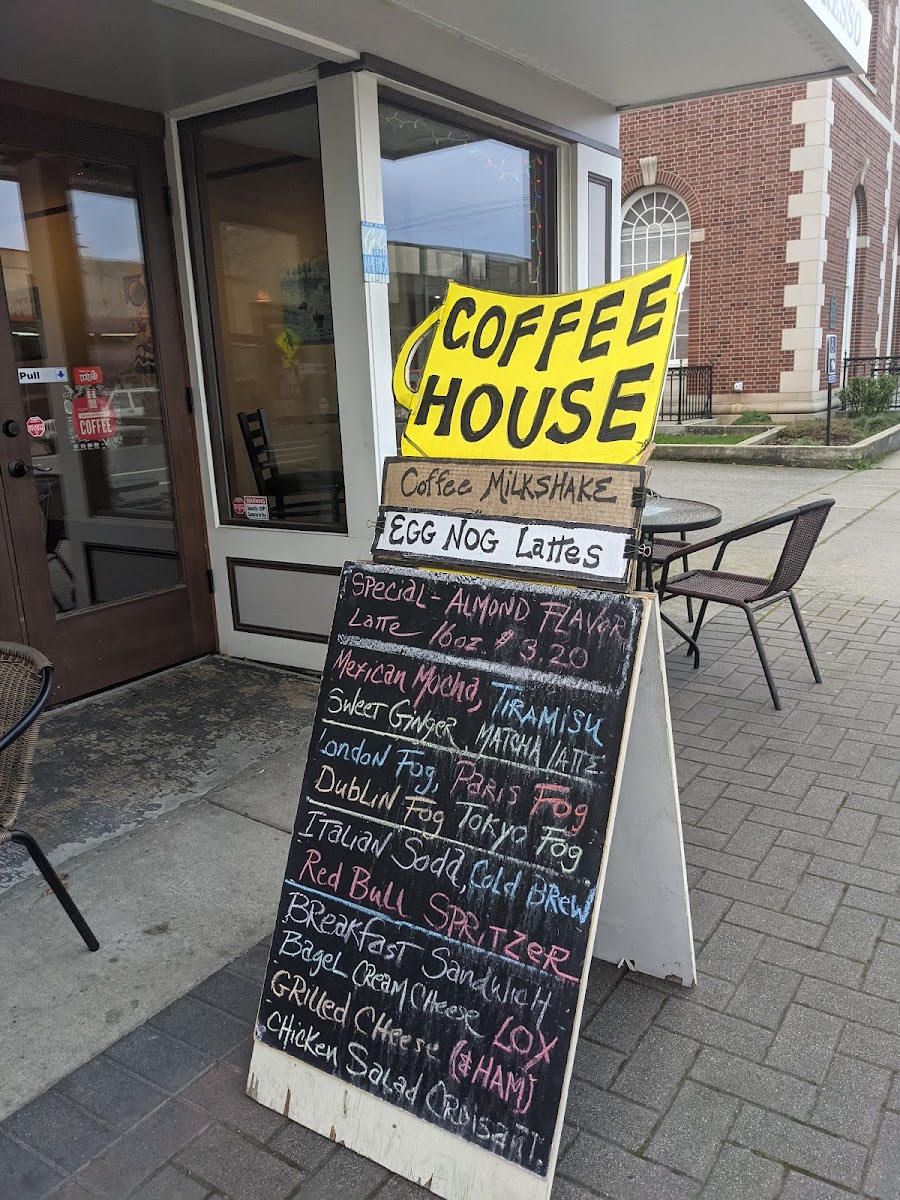 ESSO
COFFEE
HOUSE
Coffee MILKSHAKE
EGG NOG Lattes
SPECIAL - ALMOND FLAVOR
Latte 16oz. $3.20
Mexican Mocha, TIRAMISU
Sweet Ginger, MATCHA latte
London Fog, PARIS Fog
DUBLIN Fog Tokyo Fog
ITALIAN Soda, Cold BREW
Red Bull SPRITZER
BREAKfAST SANDWICH
Bagel CREAM CHeese LOX
GRilled CHeese (& HAM)
CHicken Salad CROISANT.
Pull
COFFEE
AMERICA
WARNING